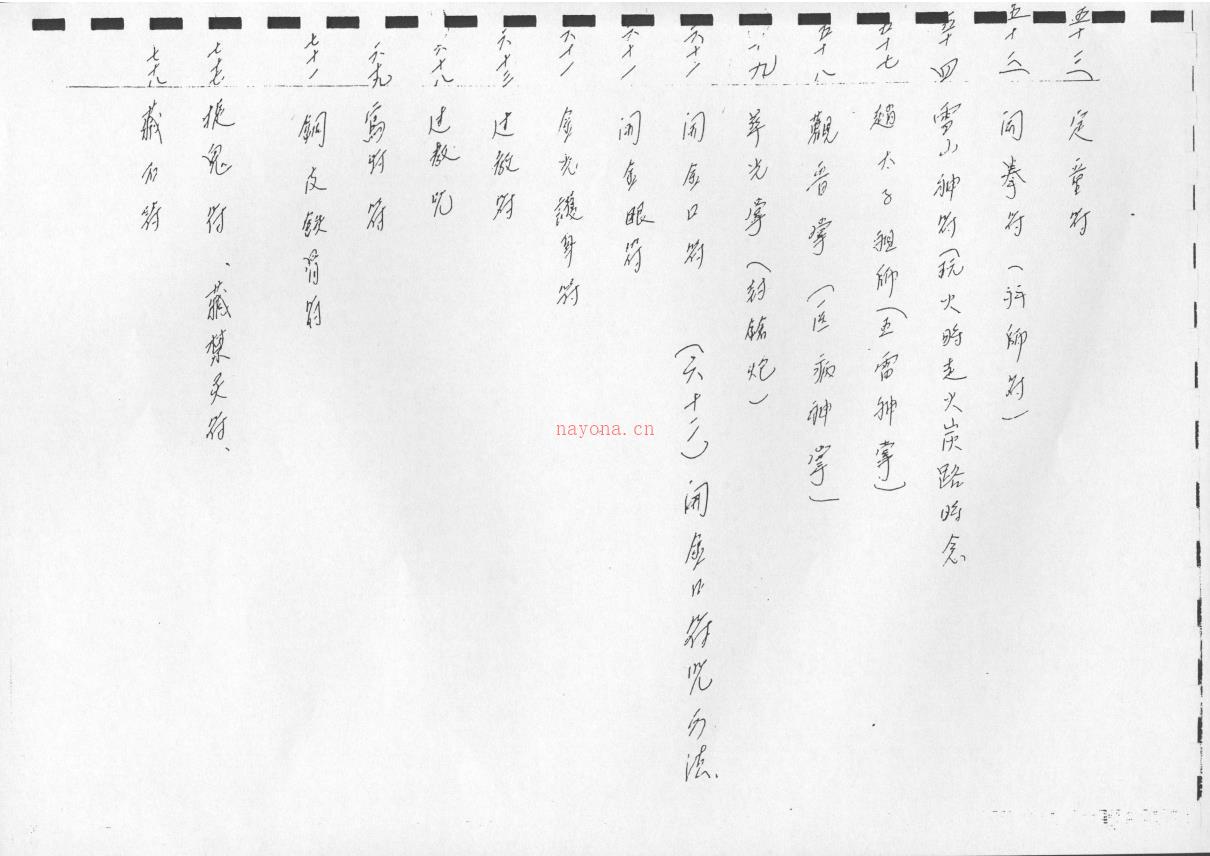 五十三 定童符
五十三 開拳符（拜師符）
五十四 雪山神符（玩火時走火炭路時念
五十七 趙太子祖師（五雷神掌）
五十八 觀音掌（医病神掌）
九 華光掌（封鎗炮）
六十二 開金口符 （六十二）開金口符咒办法、
六十一 開金眼符
六十一 金光護身符
六十三 过教符
六十八 过教咒
六十九 符
七十一 銅皮鉄骨符
鬼符、藏禁灵符、
七十八 藏 符
nayona.cn